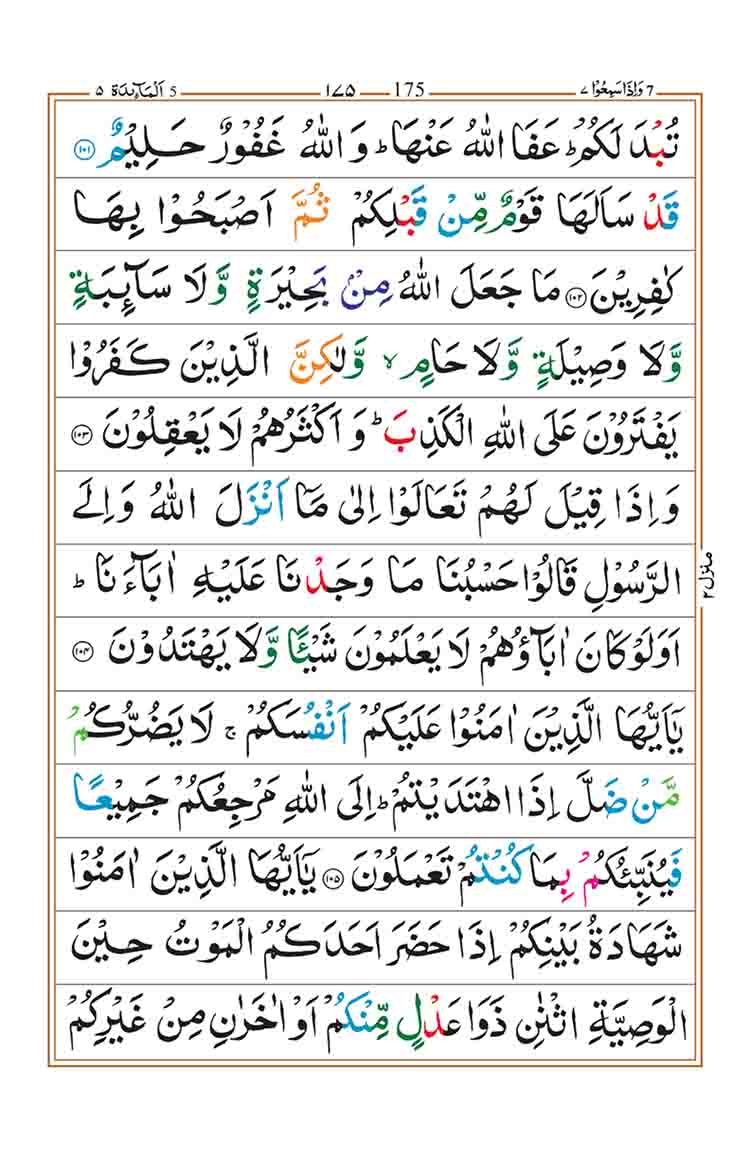 7 وَاِذَا سَمِعُوْا ۷ 175 ۱۷۵ 5 اَلْمَآئِدَة ۵
تُبْدَ لَكُمْ ؕ عَفَا اللّٰهُ عَنْهَا ؕ وَ اللّٰهُ غَفُوْرٌ حَلِيْمٌ ۱۰۱
قَدْ سَاَلَهَا قَوْمٌ مِّنْ قَبْلِكُمْ ثُمَّ اَصْبَحُوْا بِهَا
كٰفِرِيْنَ ۱۰۲ مَا جَعَلَ اللّٰهُ مِنْۢ بَحِيْرَةٍ وَّلَا سَآئِبَةٍ
وَّلَا وَصِيْلَةٍ وَّلَا حَامٍ ۙ وَّلٰكِنَّ الَّذِيْنَ كَفَرُوْا
يَفْتَرُوْنَ عَلَى اللّٰهِ الْكَذِبَ ؕ وَ اَكْثَرُهُمْ لَا يَعْقِلُوْنَ ۱۰۳
وَ اِذَا قِيْلَ لَهُمْ تَعَالَوْا اِلٰى مَاۤ اَنْزَلَ اللّٰهُ وَ اِلَى
الرَّسُوْلِ قَالُوْا حَسْبُنَا مَا وَجَدْنَا عَلَيْهِ اٰبَآءَنَا ؕ
اَوَلَوْ كَانَ اٰبَآؤُهُمْ لَا يَعْلَمُوْنَ شَيْـًٔا وَّلَا يَهْتَدُوْنَ ۱۰۴
يٰۤاَيُّهَا الَّذِيْنَ اٰمَنُوْا عَلَيْكُمْ اَنْفُسَكُمْ ۚ لَا يَضُرُّكُمْ
مَّنْ ضَلَّ اِذَا اهْتَدَيْتُمْ ؕ اِلَى اللّٰهِ مَرْجِعُكُمْ جَمِيْعًا
فَيُنَبِّئُكُمْ بِمَا كُنْتُمْ تَعْمَلُوْنَ ۱۰۵ يٰۤاَيُّهَا الَّذِيْنَ اٰمَنُوْا
شَهَادَةُ بَيْنِكُمْ اِذَا حَضَرَ اَحَدَكُمُ الْمَوْتُ حِيْنَ
الْوَصِيَّةِ اثْنٰنِ ذَوَا عَدْلٍ مِّنْكُمْ اَوْ اٰخَرٰنِ مِنْ غَيْرِكُمْ
منزل ۲